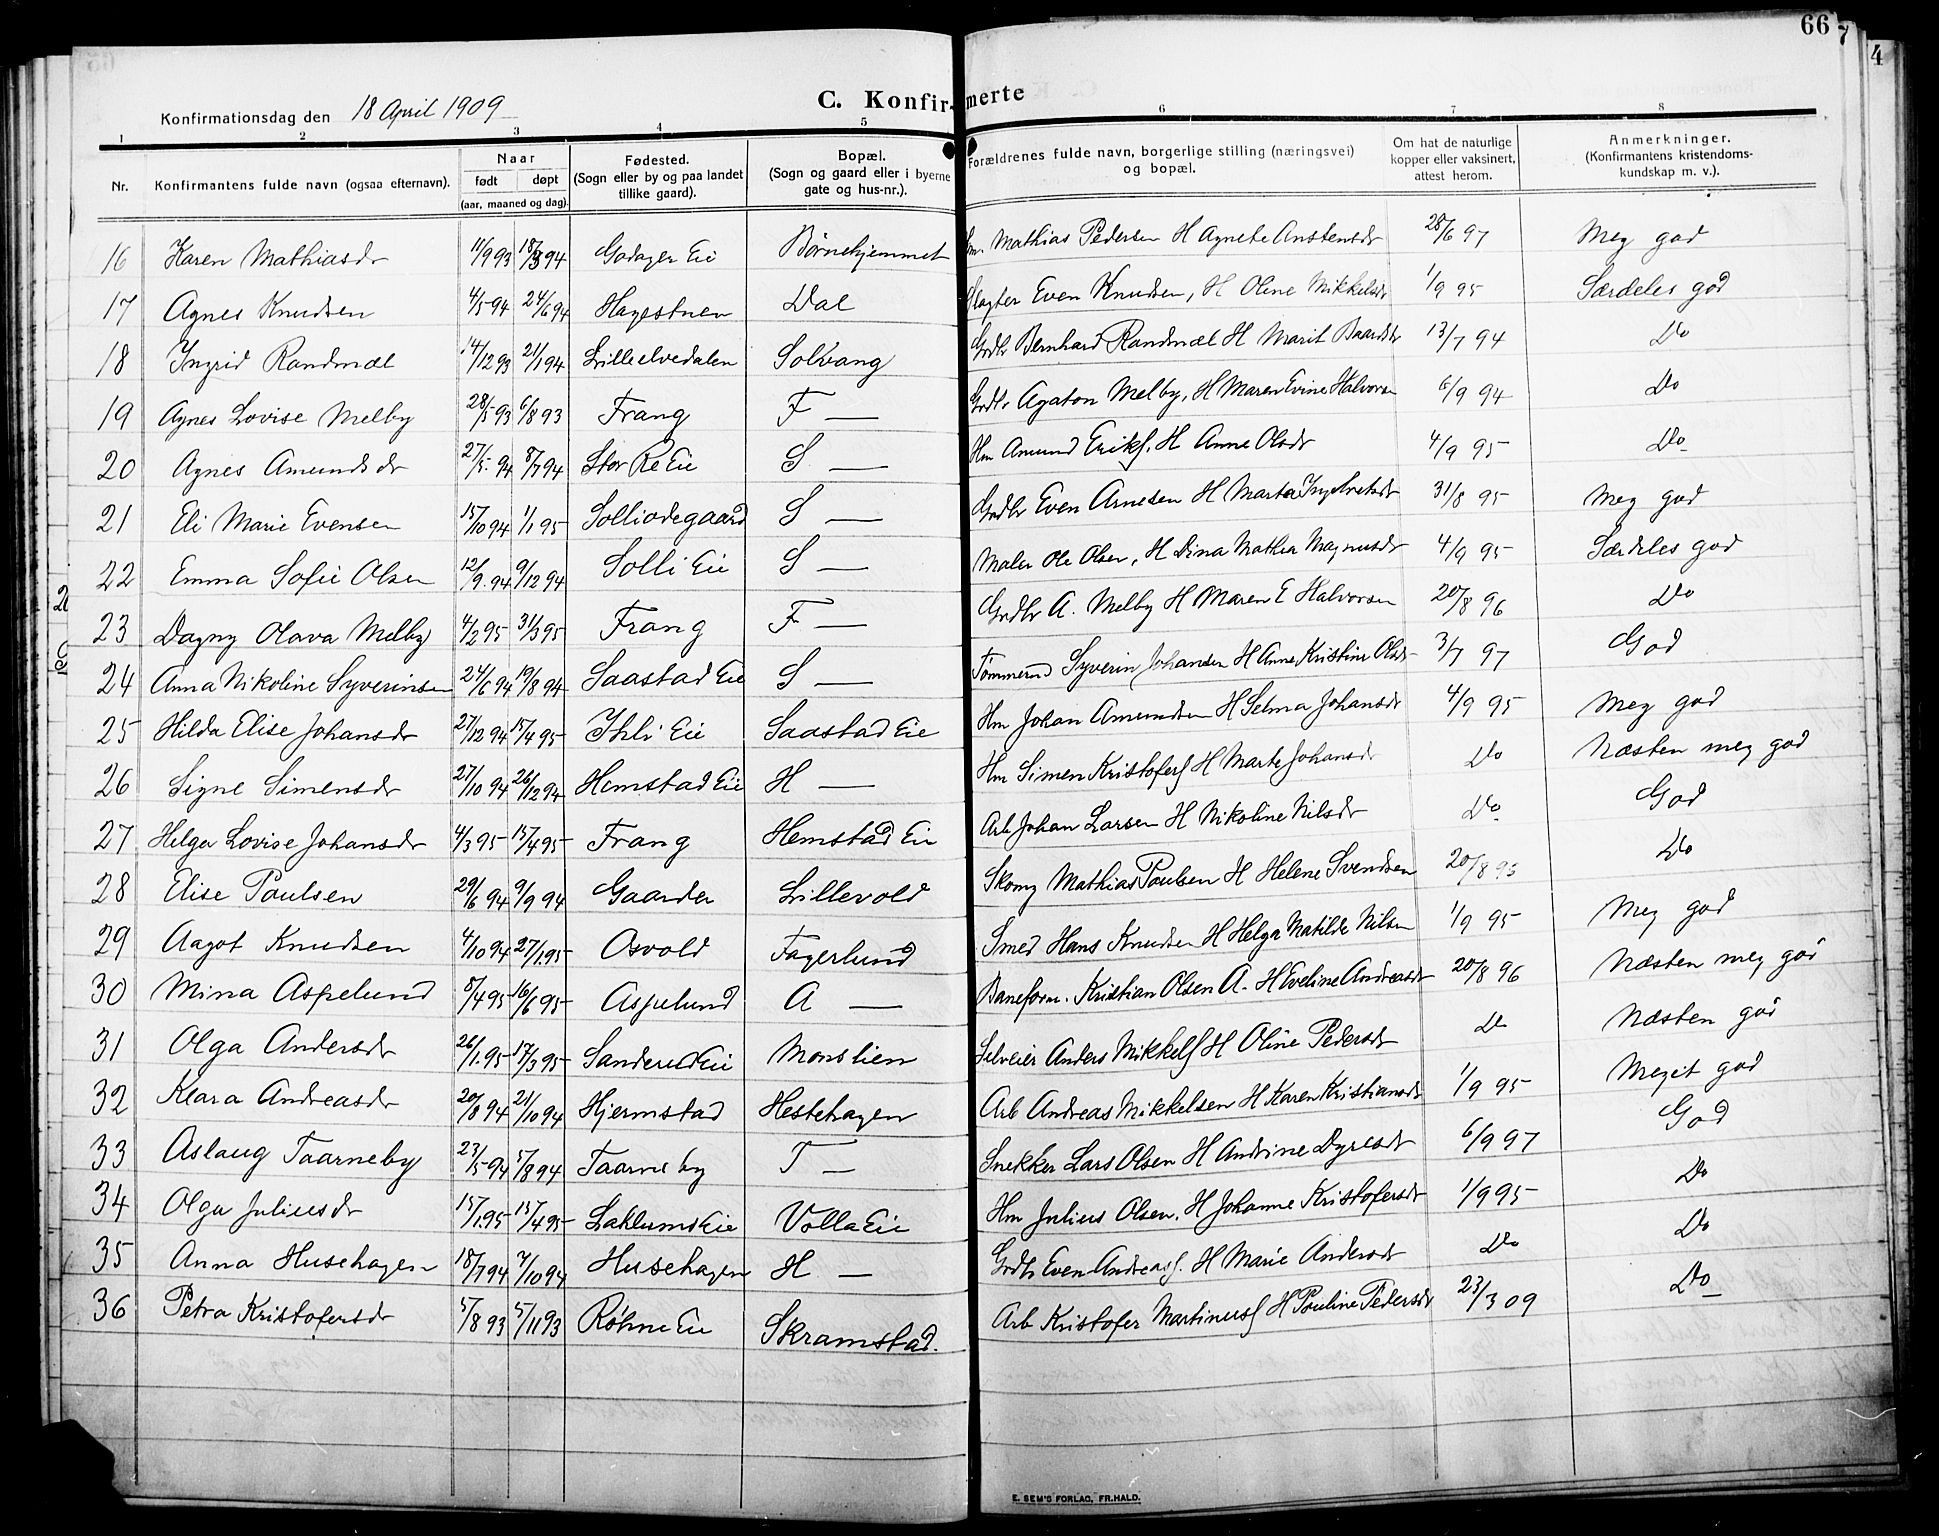 66
7
4
C. Konfirmerte
Konfirmationsdag den 18 April 1909
1 2 3 4 5 6 7 8
Nr. Konfirmantens fulde navn (ogsaa efternavn). Naar født døpt (aar, maaned og dag). Fødested. (Sogn eller by og paa landet tillike gaard). Bopæl. (Sogn og gaard eller i byerne gate og hus-nr.). Forældrenes fulde navn, borgerlige stilling (næringsvei) og bopæl. Om hat de naturlige kopper eller vaksinert, attest herom. Anmerkninger. (Konfirmantens kristendoms-kundskap m. v.).
16 Karen Mathiasdr 11/9 93 18/3 94 Godager Eie Børnehjemmet Sm. Mathias Pedersen H Agnete Anstensdr 28/6 97 Meg god
17 Agnes Knudsen 4/5 94 24/6 94 Hagestuen Dal Slagter Even Knudsen, H Oline Mikkelsdr 1/9 95 Særdeles god
18 Ingrid Randmæl 14/12 93 21/1 94 Lilleelvedalen Solvang Grdbr Bernhard Randmæl H Marit Baardsdr 13/7 94 Do
19 Agnes Lovise Melby 28/5 93 6/8 93 Frang F — Grdbr Agaton Melby, H Maren Evine Halvorsen 6/9 94 Do
20 Agnes Amundsdr 27/5 94 8/7 94 Stor Re Eie S — Hm Amund Eriks. H Anne Olsdr 4/9 95 Do
21 Eli Marie Evensen 15/10 94 1/1 95 Solliødegaard S — Grdbr Even Arnesen H Marta Ingebretsdr 31/8 95 Meg god
22 Emma Sofie Olsen 12/9 94 9/12 94 Solli Eie S — Maler Ole Olsen, H Dina Mathea Magnusdr 4/9 95 Særdeles god
23 Dagny Olava Melby 4/2 95 31/3 95 Frang F — Grdbr A. Melby H Maren E Halvorsen 20/8 96 Do
24 Anna Nikoline Syverinsen 24/6 94 19/8 94 Saastad Eie S — Tømmermd Syverin Johansen H Anne Kristine Olsdr 3/7 97 God
25 Hilda Elise Johansdr 27/12 94 15/4 95 Ihli Eie Saastad Eie Hm Johan Amundsen H Selma Johansdr 4/9 95 Meg god
26 Signe Simensdr 27/10 94 26/12 94 Hemstad Eie H — Hm Simen Kristofers H Marte Johansdr Do Næsten meg god
27 Helga Lovise Johansdr 4/3 95 15/4 95 Frang Hemstad Eie Arb Johan Larsen H Nikoline Nilsdr Do God
28 Elise Paulsen 29/6 94 9/9 94 Gaarder Lillevold Skomg Mathias Paulsen H Helene Svendsen 20/8 95 Do
29 Aagot Knudsen 4/10 94 27/1 95 Osvold Fagerlund Smed Hans Knudsen H Helga Matilde Nilsen 1/9 95 Meg god
30 Mina Aspelund 8/4 95 16/6 95 Aspelund A — Baneform. Kristian Olsen A. H Eveline Andreasdr 20/8 96 Næsten meg god
31 Olga Andersdr 26/1 95 17/3 95 Sanderud Eie Monslien Selveier Anders Mikkels H Oline Pedersdr Do Næsten god
32 Klara Andreasdr 20/8 94 21/10 94 Hjermstad Hestehagen Arb Andreas Mikkelsen H Karen Kristiansdr 1/9 95 Meget god
33 Aslaug Taarneby 23/5 94 5/8 94 Taarneby T — Snekker Lars Olsen H Andrine Dyresdr 6/9 97 God
34 Olga Juliusdr 15/1 95 15/4 95 Laklums Eie Volla Eie Hm Julius Olsen, H Johanne Kristofersdr 1/9 95 Do
35 Anna Husehagen 18/7 94 7/10 94 Husehagen H — Grdbr Even Andreass. H Marie Andersdr Do Do
36 Petra Kristofersdr 5/8 93 5/11 93 Røhne Eie Skramstad. Arb Kristofer Martinus H Pauline Pedersdr 23/3 09 Do
E. SEM'S FORLAG, FR.HALD.